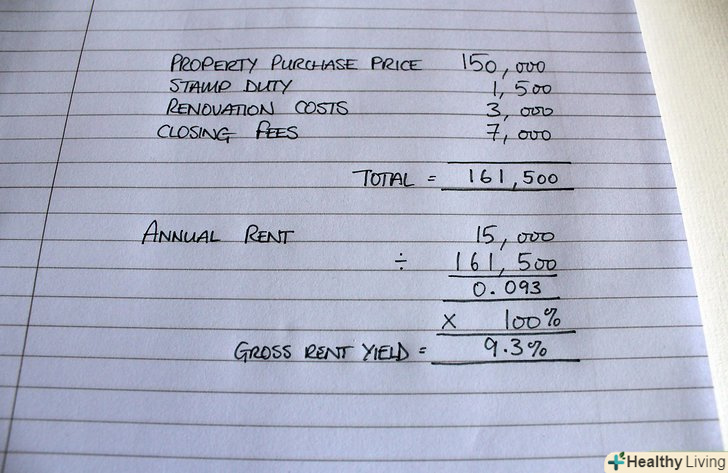 PROPERTY PURCHASE PRICE 150,000
STAMP DUTY 1,500
RENOVATION COSTS 3,000
CLOSING FEES 7,000
TOTAL = 161,500
ANNUAL RENT 15,000
÷ 161,500
0.093
X 100%
GROSS RENT YIELD = 9.3%
Healthy Living